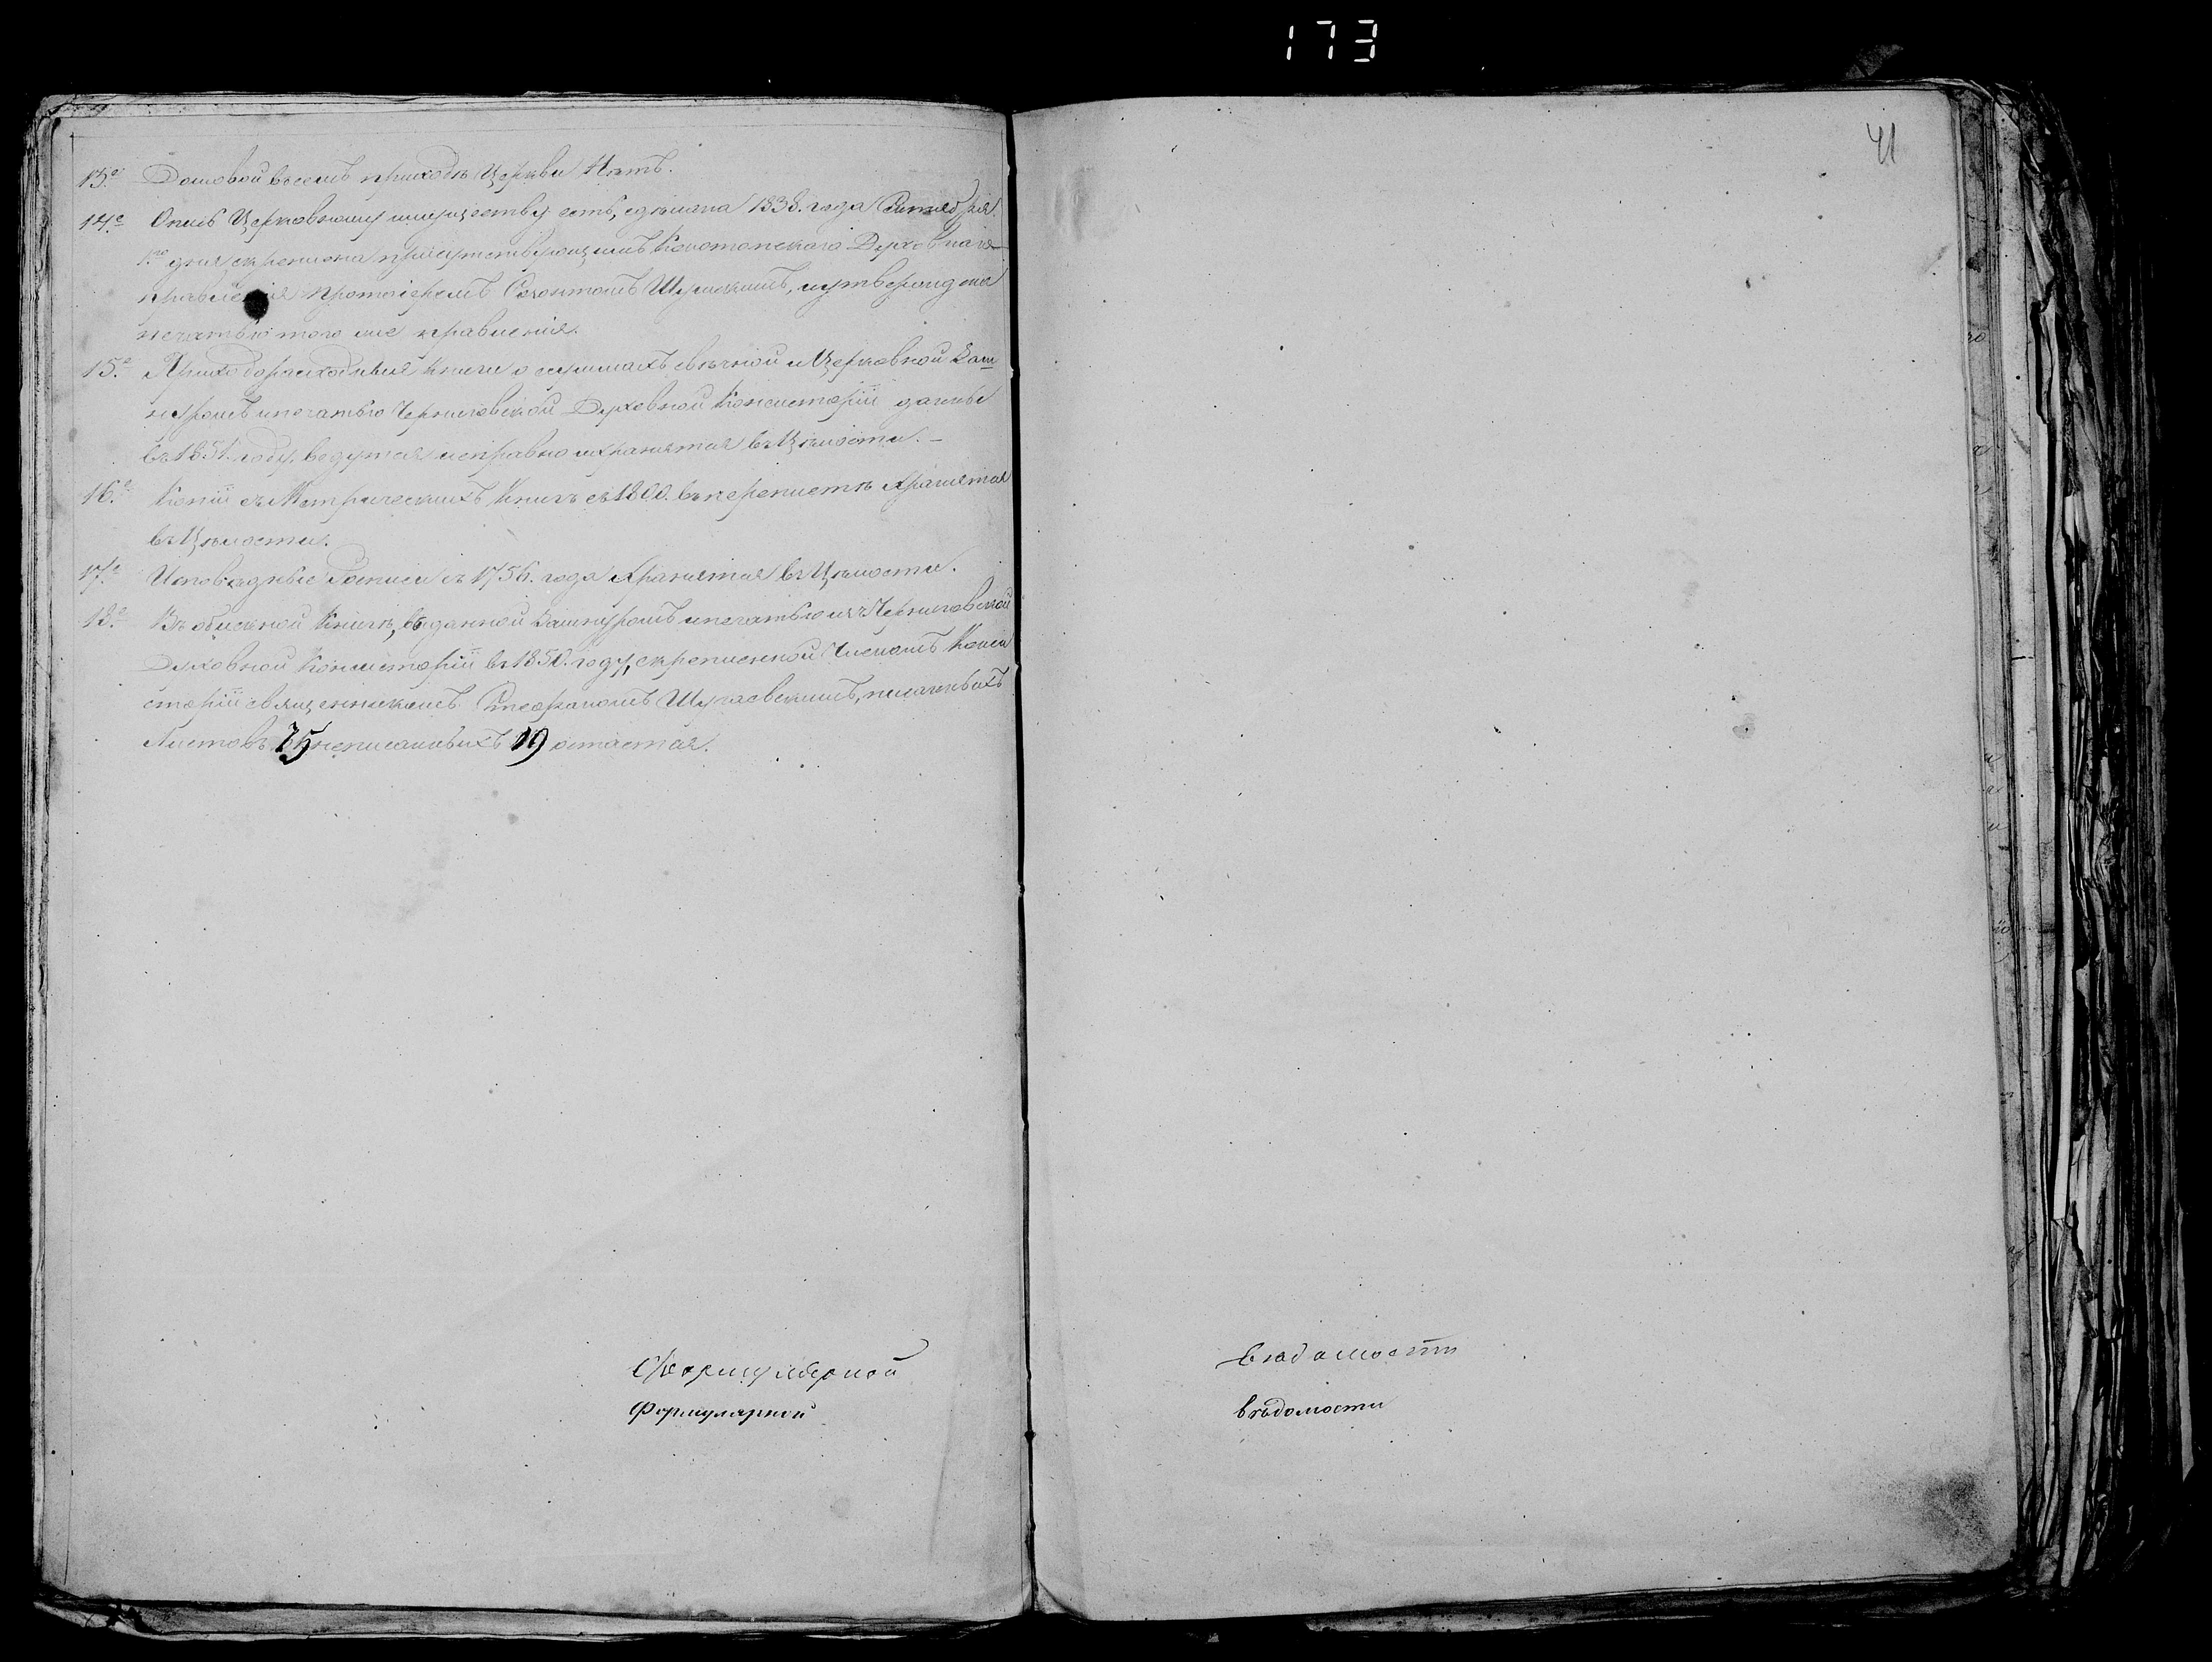 173
13.е Домовой въ семъ приходѣ Церкви Нѣтъ.
14.е Опись Церковному имуществу есть, сдѣлана 1838. года Сентября
1.го дня скреплена присутствующимъ Конотопскаго Духовнаго
правленія Протоіереемъ Созонтомъ, и утверждена
печатью того же правленія.
15.е Приходорасходныя Книги о суммахъ свѣчной и Церковной за ш=
нуромъ и печатью Черниговской Духовной Консисторіи данные
въ 1851. году, ведутся исправно и хранятся въ Цѣлости. –
16.е Копіи съ Метрическихъ Книгъ съ 1800. въ хранятся
въ Цѣлости.
17.е Исповѣдные Росписи съ 1756. года хранятся въ Цѣлости.
18.е Въ обыскной Книгѣ, выданной за шнуромъ и печатью изъ Черниговской
Духовной Консисторіи въ 1850. году, скрепленной Членомъ Конси
сторіи священникомъ Стефаномъ, писанныхъ
Листовъ 75 неписанныхъ 19 остается.
Формулярной
Формулярной
41
вѣдомости
вѣдомости